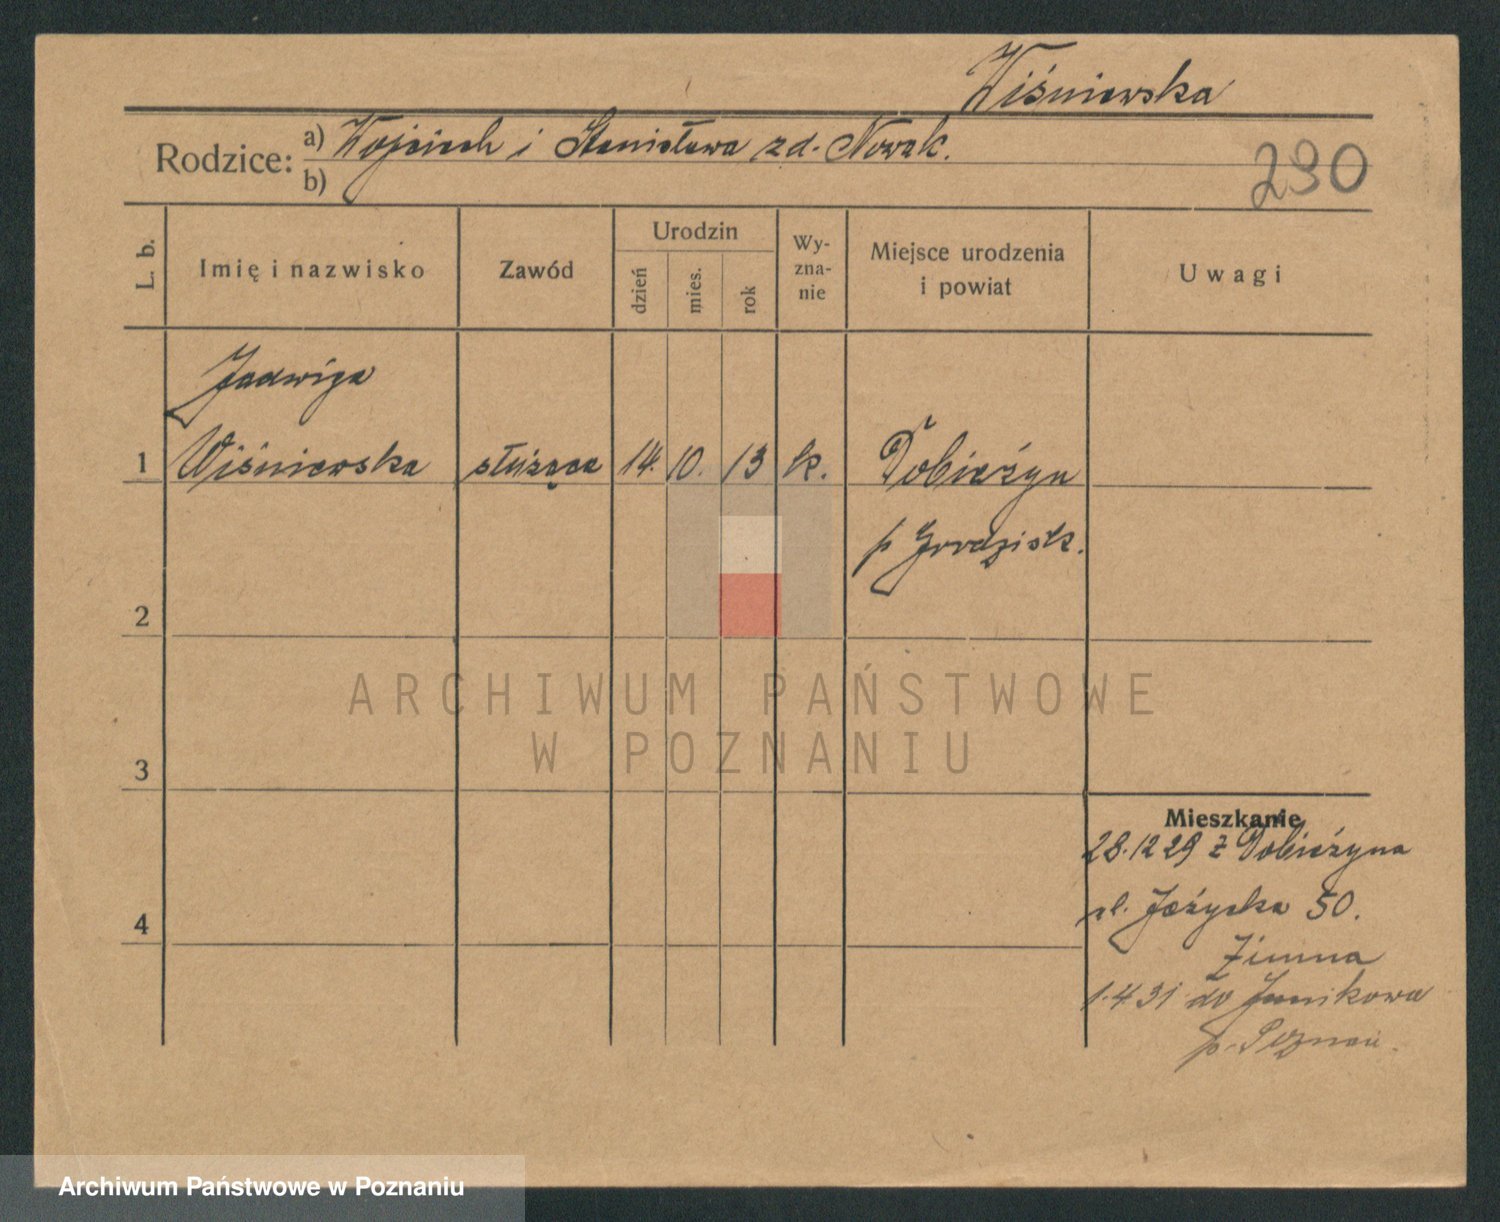 Wiśniewska
Rodzice: a) Wojciech i Stanisława zd. Nowak.
b)
290
L. b.
Imię i nazwisko
Zawód
Urodzin
dzień
mies.
rok
Wy-
zna-
nie
Miejsce urodzenia
i powiat
Uwagi
Jadwiga
1 Wiśniewska służąca 14. 10. 13 k. Dobieżyn
p Grodzisk.
2
ARCHIWUM PAŃSTWOWE
W POZNANIU
3
Mieszkanie
28.12 29 z Dobieżyna
ul. Jeżycka 50.
4
Zimna
1.4.31 do Junikowa
p. Poznań.
Archiwum Państwowe w Poznaniu